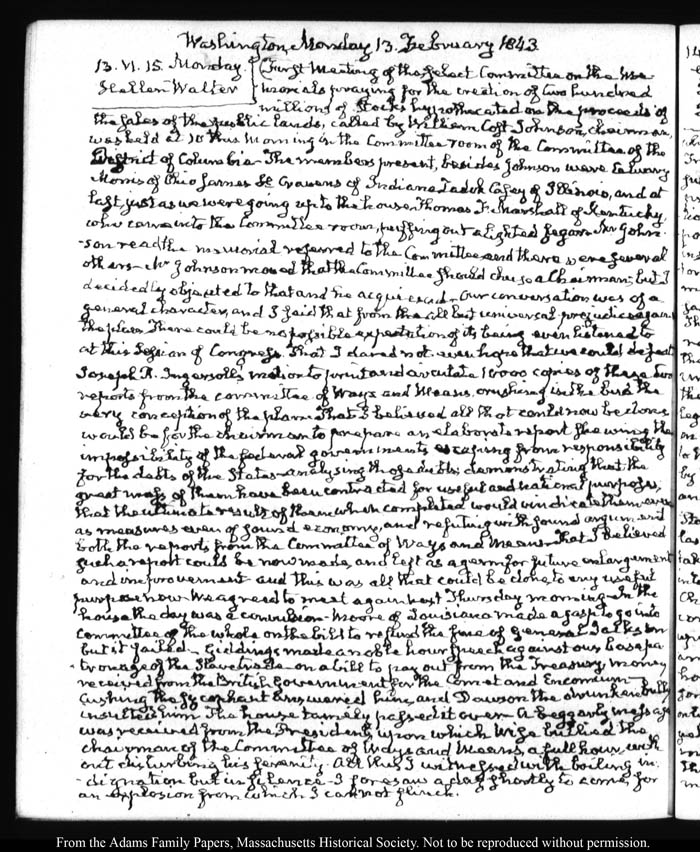 Washington, Monday 13. February 1843.
13. VI. 15. Monday.
Hellen Walter
First meeting of the select Committee on the me-
morials praying for the creation of two hundred
millions of Stocks hypothecated on the proceeds of
the sales of the public lands, called by William Cost Johnson, chairman,
was held at 10 this Morning in the Committee room of the Committee of the
District of Columbia. The members present, besides Johnson were Calvary
Morris of Ohio James H. Cravens of Indiana Zadok Casey of Illinois, and at
last, just as we were going up to the house, Thomas F. Marshall of Kentucky,
who came into the Committee room, puffing out a lighted segar. Mr John-
son read the memorial referred to the Committee and there were several
others. Mr Johnson moved that the Committee should chuse a Chairman; but I
decidedly objected to that and he acquiesced. Our conversation was of a
general character, and I said that from the all but universal prejudice against
the plan There could be no possible expectation of its being even listened to
at this Session of Congress. That I dared not even hope that we could defeat
Joseph R. Ingersoll's motion to print and circulate 10000 copies of these two
reports from the committee of Ways and Means, crushing in the bud the
very conception of the plan. That I believed all that could now be done
would be for the chairman to prepare an elaborate report shewing the
impossibility of the federal government's escaping from responsibility
for the debts of the States—analysing those debts; demonstrating that the
great mass of them have been contracted for useful and national purposes;
that the ultimate results of them when completed would vindicate them even
as measures even of sound economy, and refuting with sound argument
both the reports from the Committee of Ways and Means. That I believed
such a report could be now made, and left as a germ for future enlargement
and improvement and this was all that could be done to any useful
purpose now. We agreed to meet again next Thursday morning. In the
house the day was a convulsion. Moore of Louisiana made a gasp to go into
Committee of the whole on the bill to refund the fine of General Jackson
but it failed. Giddings made a noble hour speech against our base pa-
tronage of the Slave trade—on a bill to pay out from the Treasury money
received from the British Government for the Comet and Encomium—
Cushing the sycophant answered him, and Dawson the drunken bully
insulted him. The house tamely passed it over. A beggarly message
was received from the President, upon which Wise bullied the
chairman of the Committee of Ways and Means, a full hour, with-
out disturbing his serenity. All this I witnessed with boiling in-
dignation but in silence. I foresaw a day shortly to come, for
an explosion from which I cannot flinch.
From the Adams Family Papers, Massachusetts Historical Society. Not to be reproduced without permission.